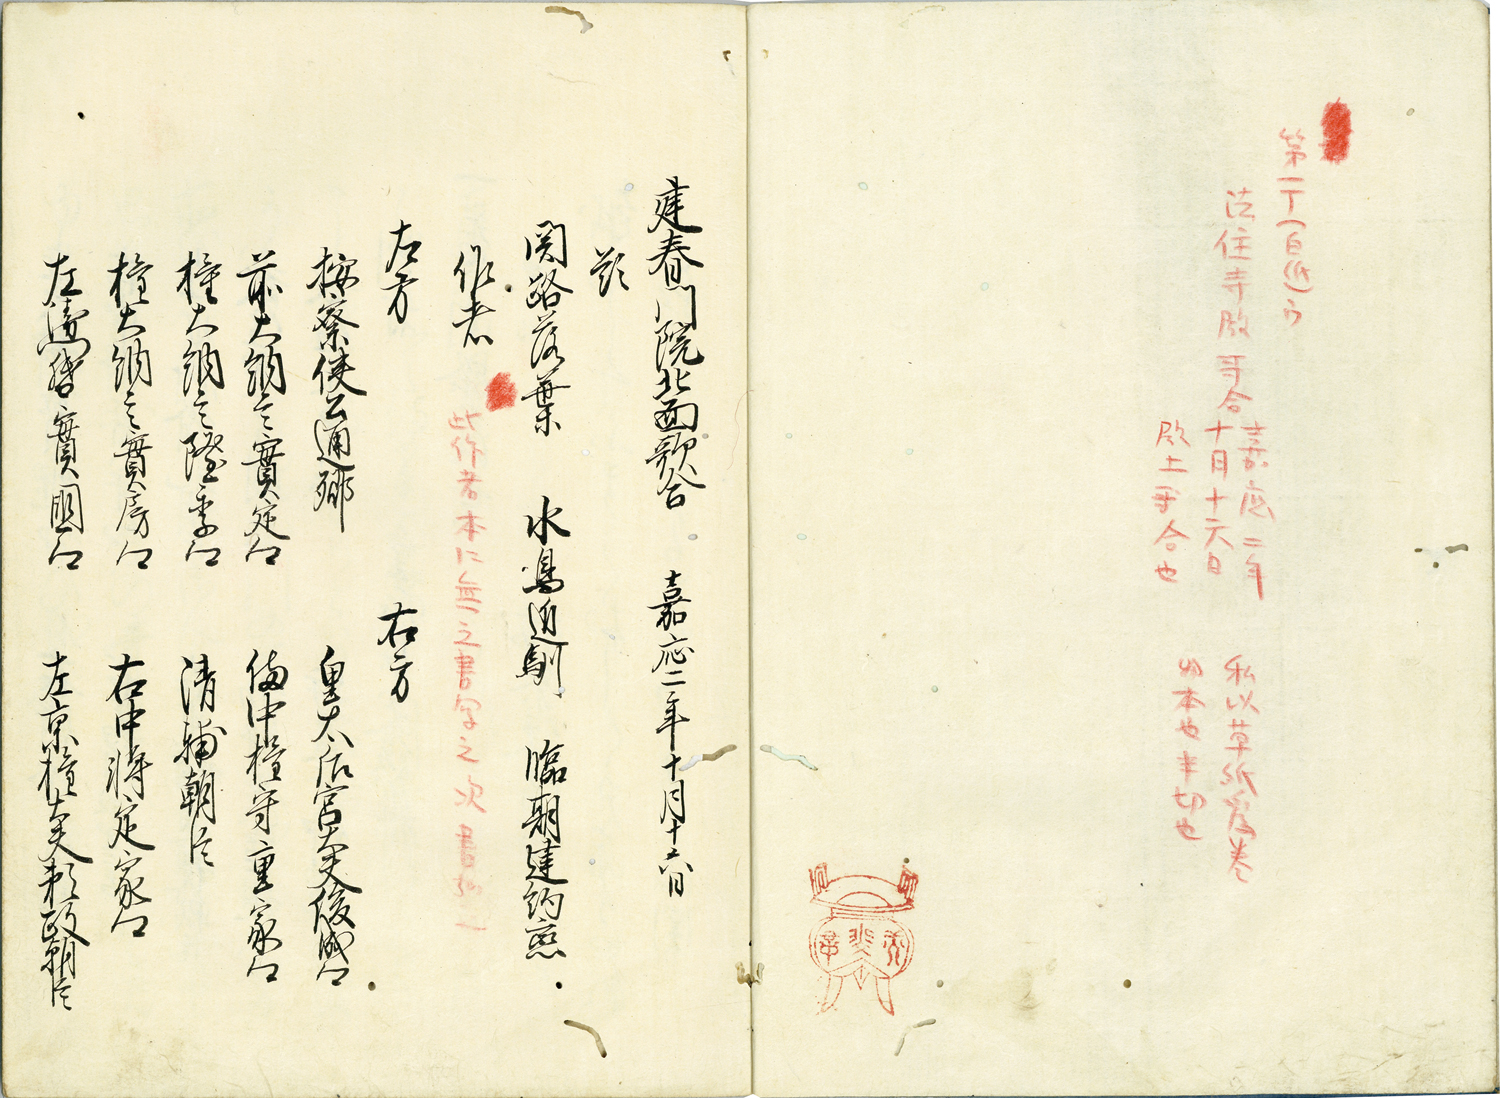 第一丁一白紙
法住寺殿哥合
嘉応二年
十月十六日
殿上哥合也
私以草紙為巻
本也半切也
建春門院北面歌合　嘉応二年十月十六日
題
関路落葉　水鳥近馴　臨期違約恋
作者
此作者本に無之書写之次書加
左方　右方
按察使公通卿　皇太后宮大夫俊成卿
前大納言實定卿　備中権守重家卿
権大納言隆季卿　清輔朝臣
権大納言實房卿　右中将定家卿
左衛門督實国卿　左京権大夫頼政朝臣